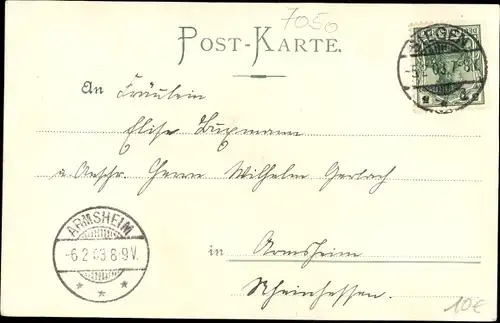 7050
SIEGEN
-5.2.03.7-8.V.
POST-KARTE.
An Fräulein
Elise
Herrn Wilhelm Gerlach
ARMSHEIM
-6.2.03.8-9V.
in Armsheim
Rheinhessen.
10€